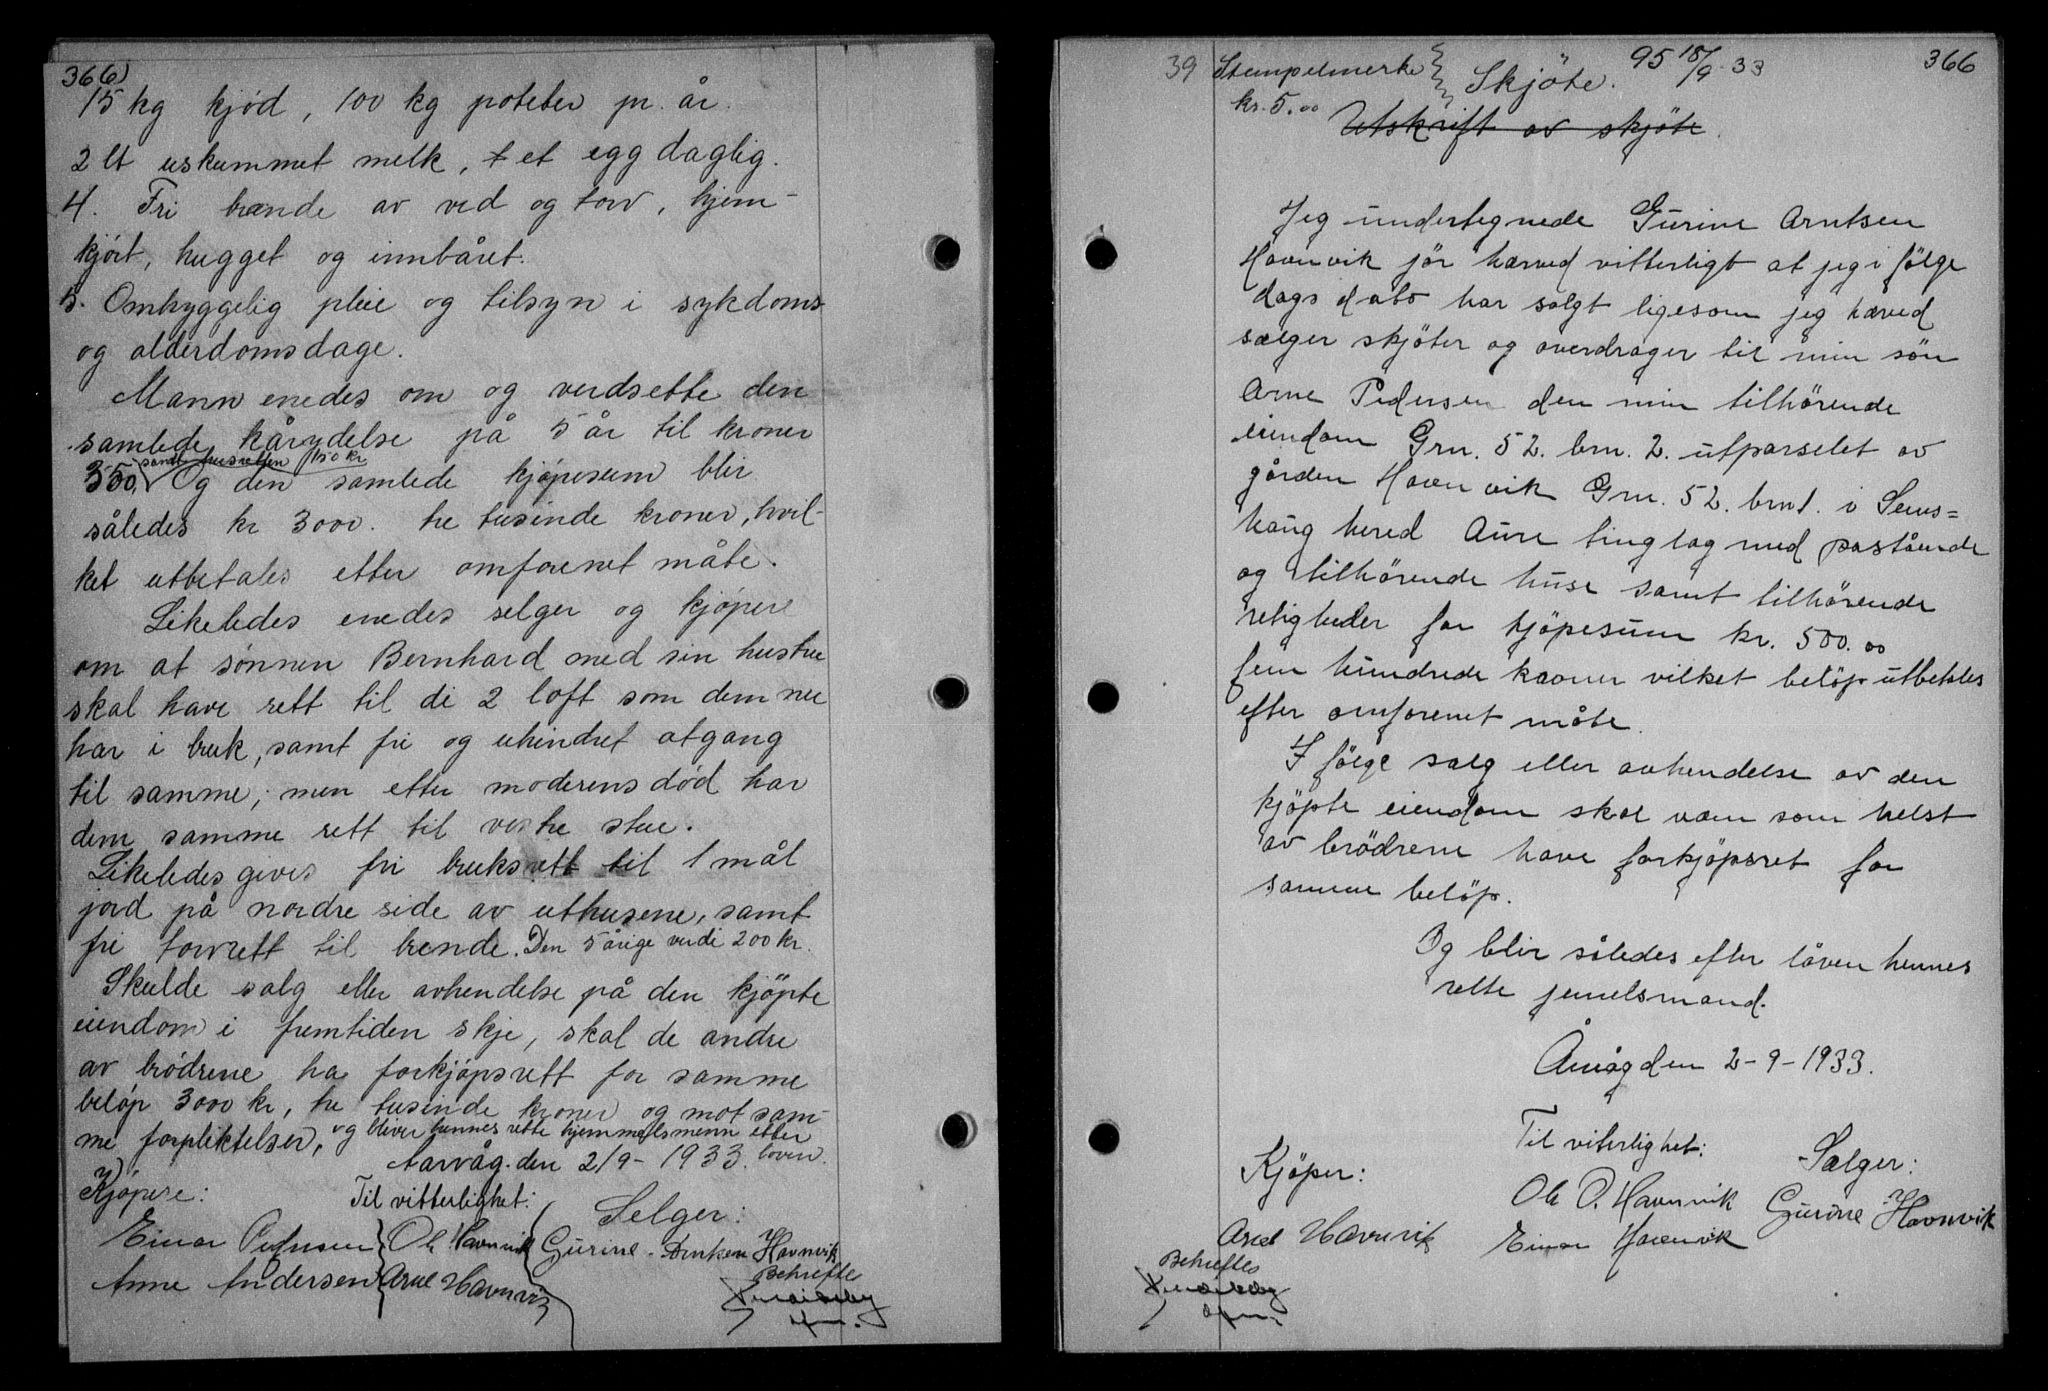 366)
15 kg kjød, 100 kg poteter pr. år.
2 lt uskummet melk, et egg daglig.
4. Fri brænde av ved og torv, hjem-
kjört, hugget og innbåret.
5. Omhyggelig pleie og tilsyn i sykdoms
og alderdomsdage.
Mann enedes om og verdsette den
samlede kårydelse på 5 år til kroner
samt husretten 150 kr
350, Og den samlede kjøpesum blir
således kr 3000. tre tusinde kroner, hvil-
ket utbetales etter omforenet måte.
Likeledes enedes selger og kjøper
om at sønnen Bernhard med sin hustru
skal have rett til di 2 loft som dem nu
har i bruk, samt fri og uhindret atgang
til samme; men etter moderens død har
dem samme rett til vestre stue.
Likeledes gives fri bruksrett til 1 mål
jord på nordre side av uthusene, samt
fri torvrett til brende. Den 5 årige verdi 200 kr.
Skulde salg eller avhendelse på den kjöpte
eiendom i fremtiden skje, skal de andre
av brödrene ha forkjøpsrett for samme
beløp 3000 kr, tre tusinde kroner og mot sam-
me forpliktelser, og bliver hennes rette hjemmelsmenn etter
loven.
Aarvåg. den 2/9 - 1933.
Kjøpere:
Til vitterlighet:
Selger:
Einar Pedersen
Ole Havnvik
Gurine Arntsen Havnvik
Anne Andersen
Arne Havnvik
Behrefte
39 Stempelmerke
kr. 5.00
Skjöte.
95 18/9 33
366
Utskrift av skjöte.
Jeg undertegnede Gurine Arntsen
Havnvik jör hærved vitterligt at jeg i følge
dags dato har solgt ligesom jeg hæved
sælger skjöter og overdrager til min sön
Arne Pedersen den min tilhörende
eiendom Grn. 52. brn. 2. utparselet av
gården Havnvik Grn. 52. brn 1. i Sems=
haug hered Aure tinglag med påstående
og tilhörende huse samt tilhörende
retigheder for kjöpesum kr. 500.00
fem hundrede kroner vilket belöp utbetales
efter omforenet måte.
I fölge salg eller avhendelse av den
kjöpte eiendom skal væm som helst
av brödrene have forkjöpsret for
samme belöp.
Og blir således efter låven hennes
rette jemelsmand.
Årvåg den 2-9-1933.
Til viterlighet:
Kjöper:
Sælger:
Ole P. Havnvik
Gurine Havnvik
Arne Havnvik
Einar Havnvik
Behreftes